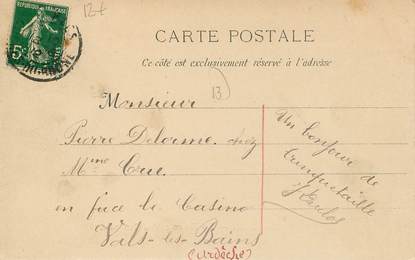 12f
REPUBLIQUE FRANÇAISE
5c
CARTE POSTALE
Ce côté est exclusivement réservé à l'adresse
13
Monsieur
Pierre Delorme. chez
Mme Crue.
en face le Casino
Vals-les-Bains
(Ardèche)
Un bonjour de
Trinquetaille